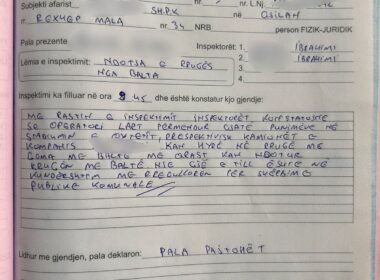 Subjekti afarist SHPK nr. LNI
nr. REXHEP MALA nr. 34 NRB në OBILIQ person FIZIK-JURIDIK
Pala prezente Inspektorët: 1. IBRAHIMI
Lëmia e inspektimit: NDOTJA E RRUGËS 2. IBRAHIMI
NGA BALTA 3.
4.
Inspektimi ka filluar në ora 8 45 dhe është konstatur kjo gjendje:
ME RASTIN E INSPEKTIMIT INSPEKTORËT KONSTATOJNË
SE OPERATORI LARTË PERMENDUR GJATË PUNIMEVE NË
E OBJEKTIT, PRESPEKTIVISHT KAMIONËT E
KOMPANIS KAN HYRË NË RRUGË ME
GOMA ME BALTË ME ÇRAST KAN NDOTUR
RRUGËN ME BALTË NSE GJË E TILL ËSHTË NË
KUNDERSHTIM ME RREGULLOREN PËR SHERBIME
PUBLIKE KOMUNALE
Lidhur me gjendjen, pala deklaron: PALA PAJTOHËT